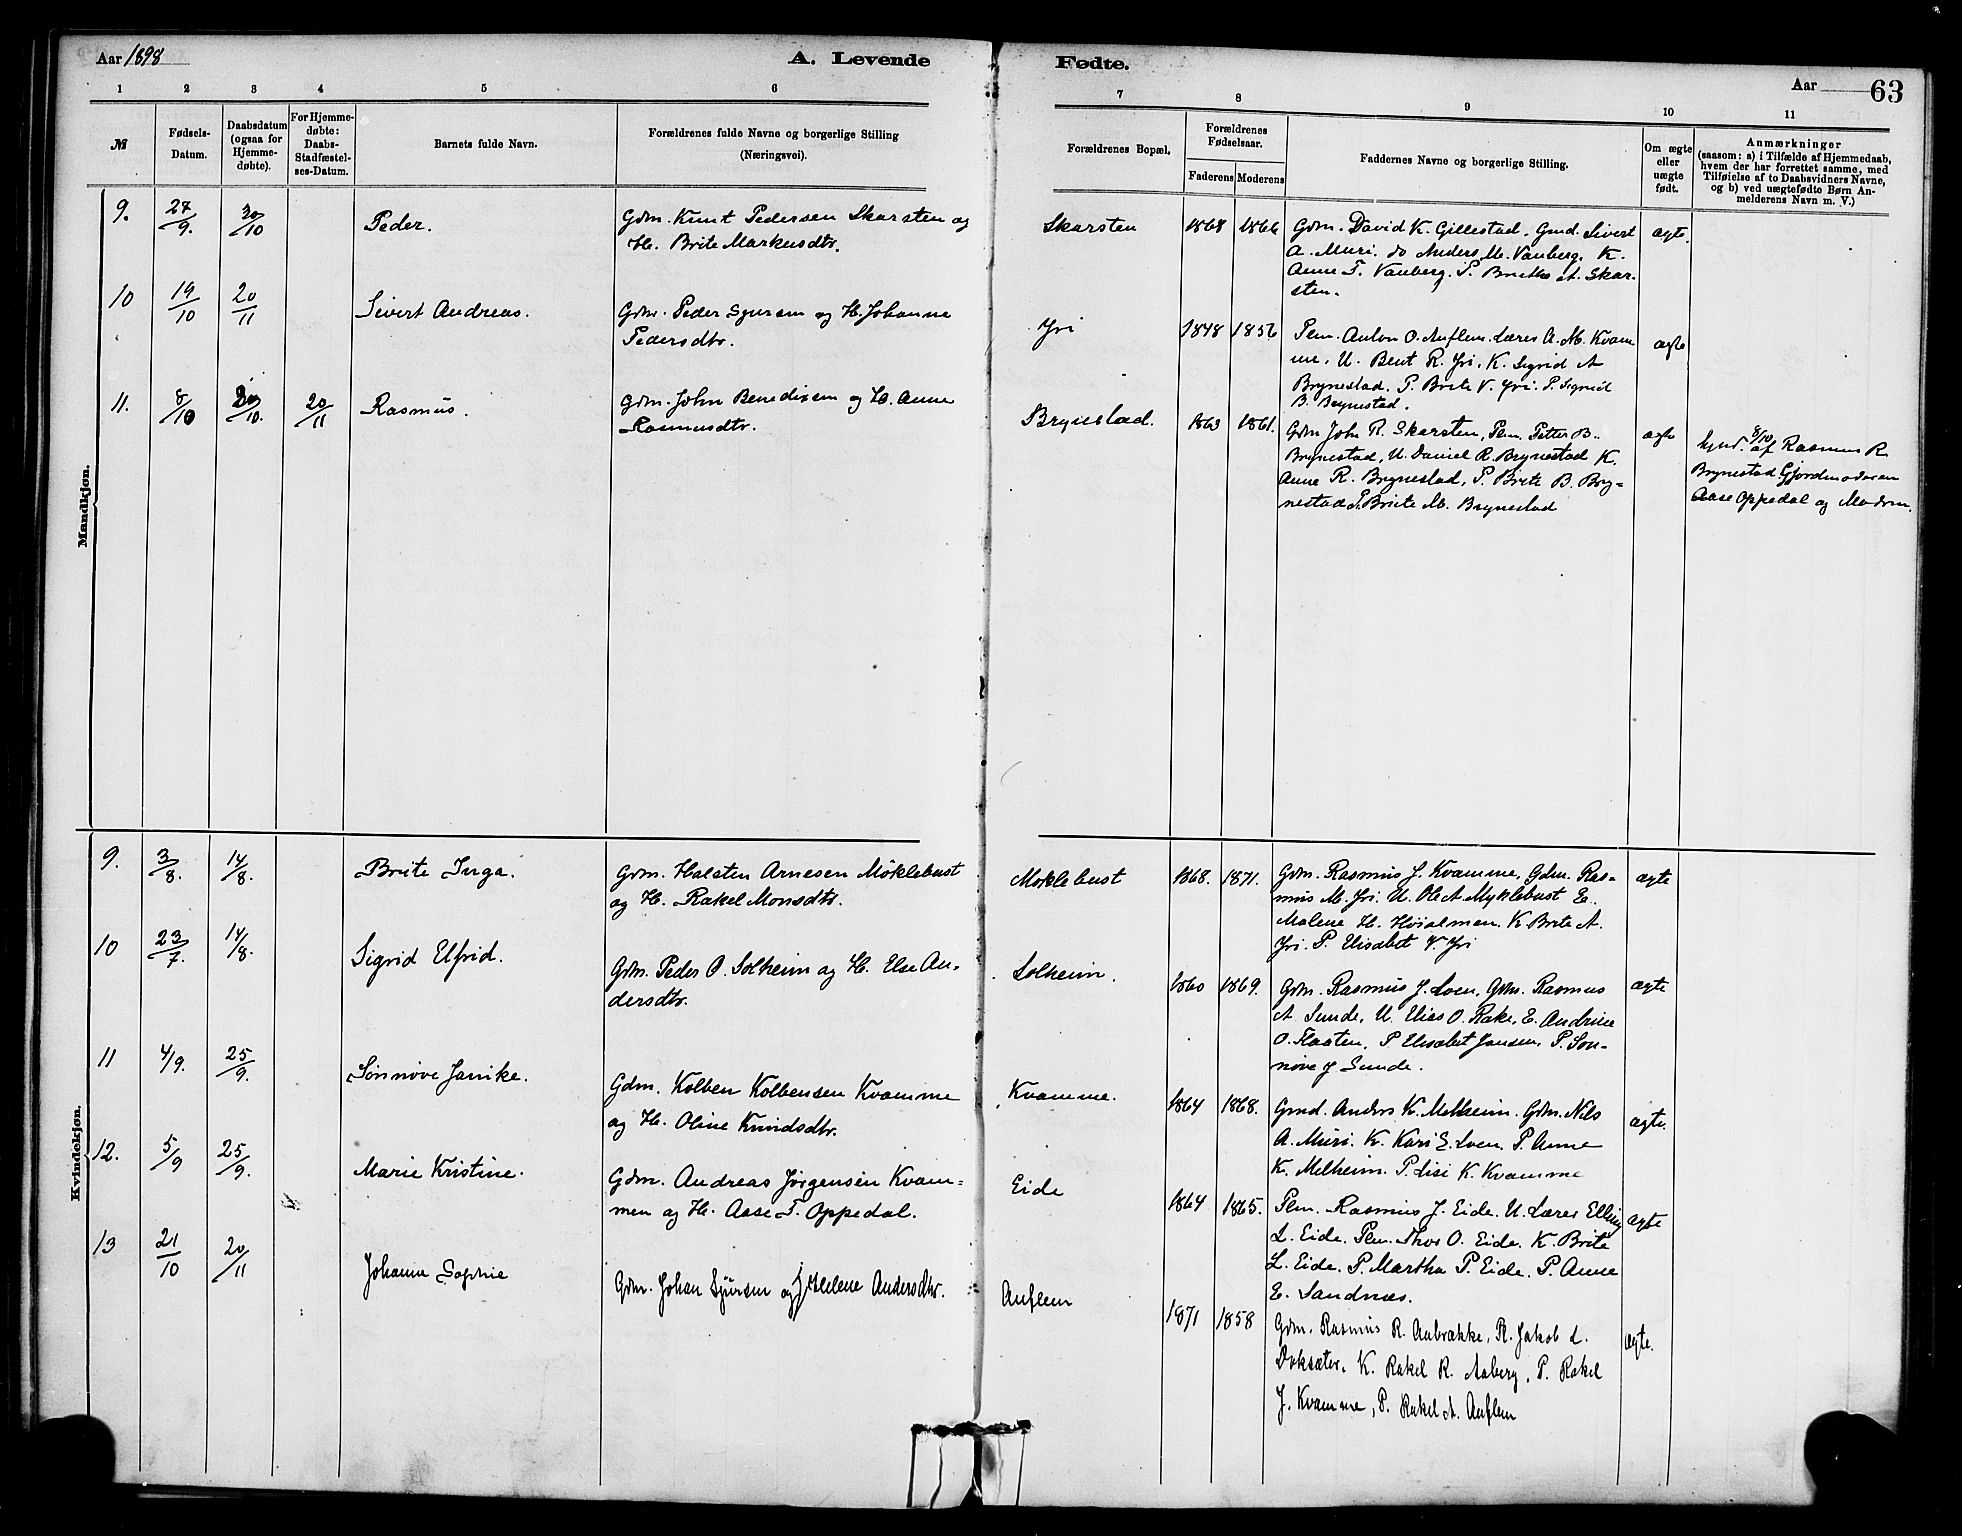 Aar 1898
A. Levende Fødte.
Aar
63
1 2 3 4 5 6 7 8 9 10 11
№
Fødsels-
Datum.
Daabsdatum
(ogsaa for
Hjemme-
døbte).
For Hjemme-
døbte:
Daabs-
Stadfæstel-
ses-Datum.
Barnets fulde Navn.
Forældrenes fulde Navne og borgerlige Stilling
(Næringsvei).
Forældrenes Bopæl,
Forældrenes
Fødselsaar.
Faderens Moderens
Faddernes Navne og borgerlige Stilling.
Om ægte
eller
uægte
født.
Anmærkninger
(saasom: a) i Tilfælde af Hjemmedaab,
hvem der har forrettet samme, med
Tilføielse af to Daabsvidners Navne,
og b) ved uægtefødte Børn An-
melderens Navn m. V.)
Mandkjøn.
9. 27/9. 30/10 Peder.
Gdm. Knut Pedersen Skarsten og
H. Brite Markusdtr.
Skarsten 1868 1866
Gdm. David K. Gillestad. Gmd. Sivert
A. Muri. do Anders M. Vanberg. K.
Anne T. Vanberg. P. Brithe A. Skar-
sten.
ægte.
10 19/10 20/11 Sivert Andreas.
Gdm. Peder Sjursen og H. Johanne
Pedersdtr.
Yri 1848 1856
Pem. Anton O. Auflem. Lærer A. M. Kvam
me, U. Bent R. Yri. K. Sigrid A
Brynestad. P. Brite V. Yri. P. Sigrid
B. Brynestad.
ægte
11. 8/10 30/10. 20/11 Rasmus.
Gdm. John Bendixen og H. Anne
Rasmusdtr.
Brynestad. 1863 1861.
Gdm John R. Skarsten, Pem. Petter B.
Brynestad, U. Daniel R. Brynestad K.
Anne R. Brynestad, P. Brite B. Bry-
nestad P. Brite M. Brynestad
ægte
hjmd. 8/10 af Rasmus R.
Brynestad Gjordmoderen
Aase Oppedal og Modren.
Kvindekjøn.
9. 3/8. 14/8. Brite Inga.
Gdm. Halsten Arnesen Möklebust
og H. Rakel Monsdtr.
Moklebust 1868. 1871.
Gdm. Rasmus J. Kvamme, Gdm. Ras-
mus M. Yri. U. Ole A Myklebust E.
Malene H. Höialmen. K. Brite A.
Yri. P. Elisabet V. Yri
ægte
10 23/7. 14/8. Sigrid Elfrid.
Gdm. Peder O. Solheim og H. Else An-
dersdtr.
Solheim. 1860 1869.
Gdm. Rasmus J. Loen, Gdm. Rasmus
A Sunde, U. Elias O. Rake, E. Andrine
O. Flaaten, P Elisabet Jansen, P. Sön-
növe J Sunde.
ægte
11 4/9. 25/9. Sönnöve Jarrike.
Gdm. Kolben Kolbensen Kvamme
og H. Oline Knudsdtr.
Kvamme. 1864 1868.
Gmd. Anders K. Melheim. Gdm. Nils
A. Muri. K. Kari E. Loen. P. Anne
K. Melheim. P. Lisi K. Kvamme
ægte.
12. 5/9 25/9. Marie Kristine.
Gdm. Andreas Jörgensen Kvam-
men og H. Aase T. Oppedal.
Eide 1864 1865.
Pem. Rasmus J. Eide. U. Lærer Elling
L. Eide. Pem. Thor O. Eide. K. Brite
L. Eide. P. Martha P. Eide. P. Anne
E. Sandnæs.
ægte
13 21/10 20/11 Johanne Sophie
Gdm. Johan Sjursen og H. Helene Andersdtr.
Auflem 1871 1858
Gdm. Rasmus R. Aabrække, R. Jakob L.
Doksæter. K. Rakel R. Aaberg, P. Rakel
J. Kvamme, P. Rakel A. Auflem
ægte.